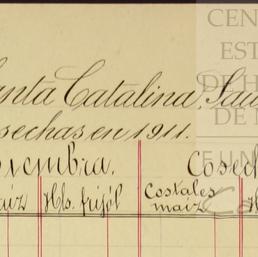 CEN
EST
DE H
DE
FUN
Santa Catalina, Sau
osechas en 1911.
iembra. Cosech
aíz Hls. frijól Costales maíz H